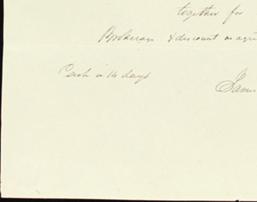 together for
Brokerage & discount as agre
Cash in 14 days